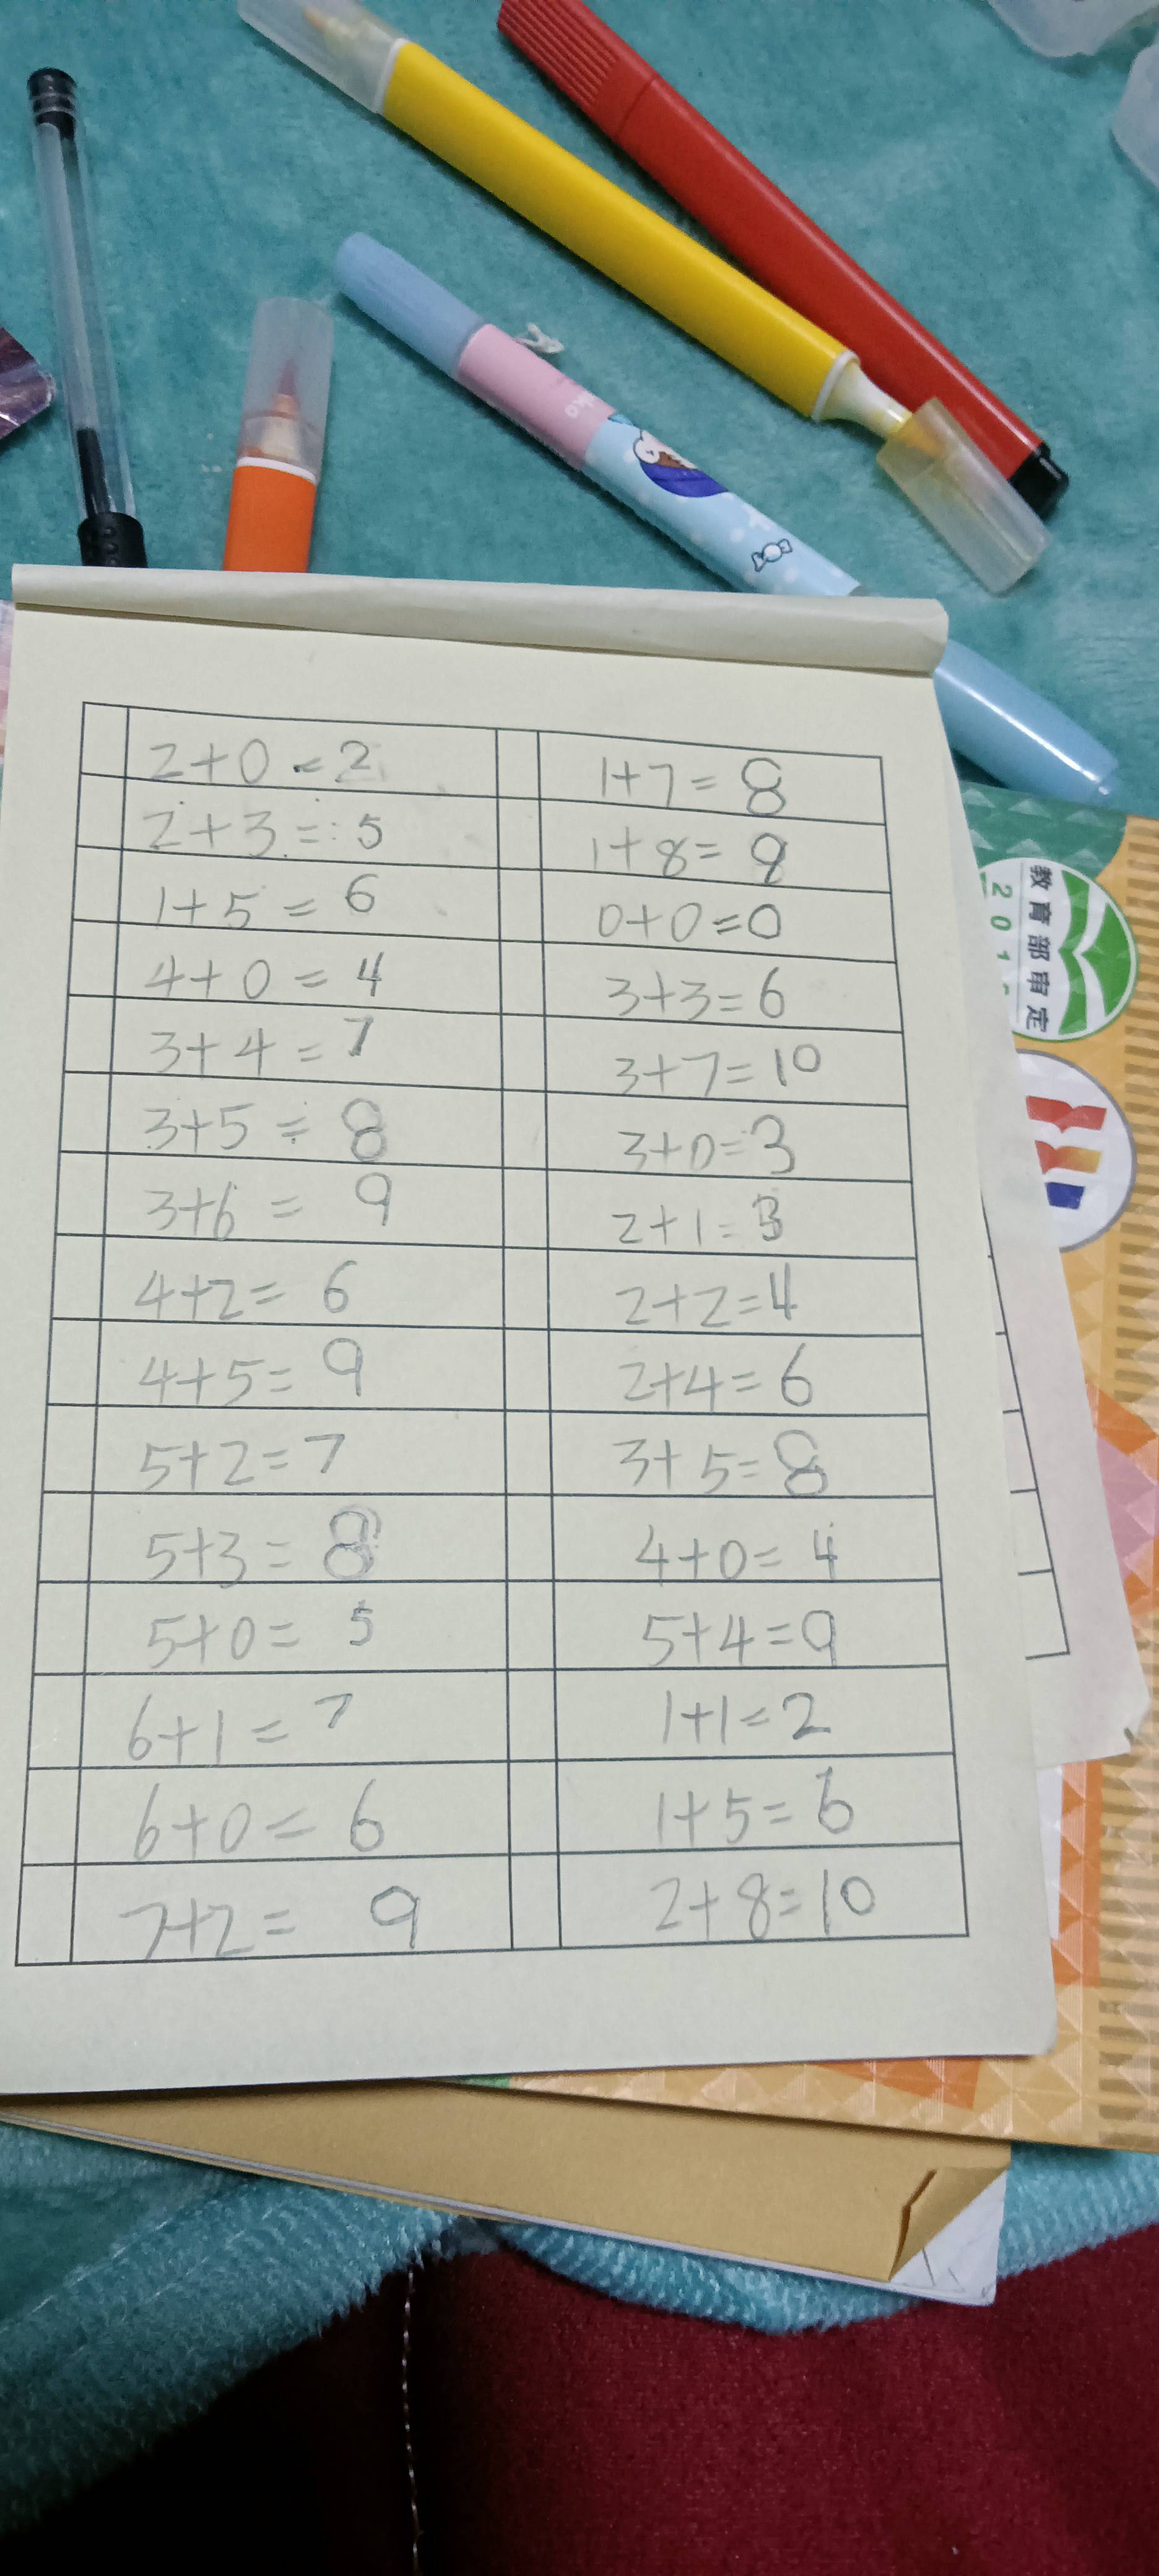 2+0=2
2+3=5
1+5=6
4+0=4
3+4=7
3+5=8
3+6=9
4+2=6
4+5=9
5+2=7
5+3=8
5+0=5
6+1=7
6+0=6
7+2=9
1+7=8
1+8=9
0+0=0
3+3=6
3+7=10
3+0=3
2+1=3
2+2=4
2+4=6
3+5=8
4+0=4
5+4=9
1+1=2
1+5=6
2+8=10
教育部审定
201